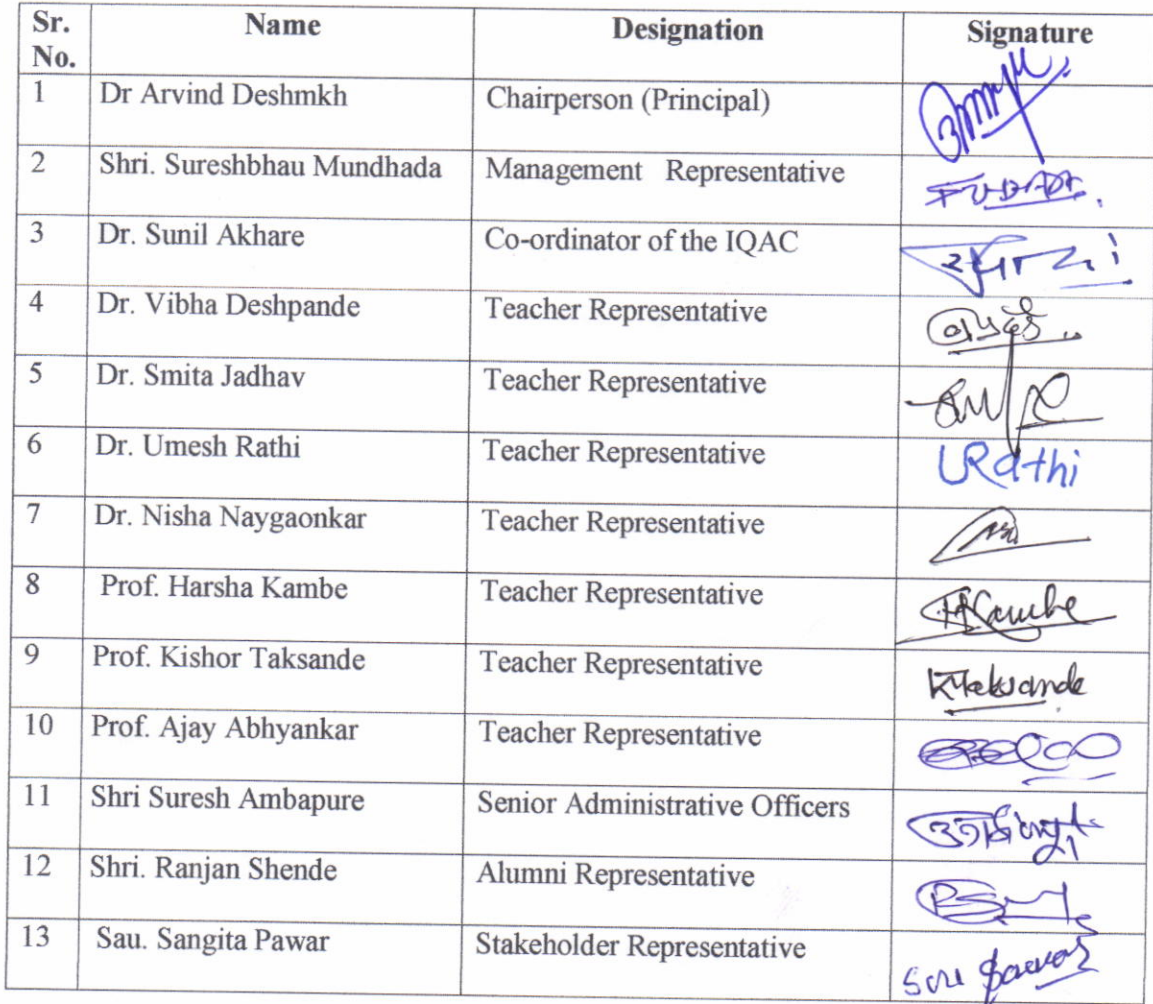 Sr. No. Name Designation Signature
1 Dr Arvind Deshmkh Chairperson (Principal)
2 Shri. Sureshbhau Mundhada Management Representative
3 Dr. Sunil Akhare Co-ordinator of the IQAC
4 Dr. Vibha Deshpande Teacher Representative
5 Dr. Smita Jadhav Teacher Representative
6 Dr. Umesh Rathi Teacher Representative URathi
7 Dr. Nisha Naygaonkar Teacher Representative
8 Prof. Harsha Kambe Teacher Representative HKambe
9 Prof. Kishor Taksande Teacher Representative
10 Prof. Ajay Abhyankar Teacher Representative
11 Shri Suresh Ambapure Senior Administrative Officers
12 Shri. Ranjan Shende Alumni Representative
13 Sau. Sangita Pawar Stakeholder Representative